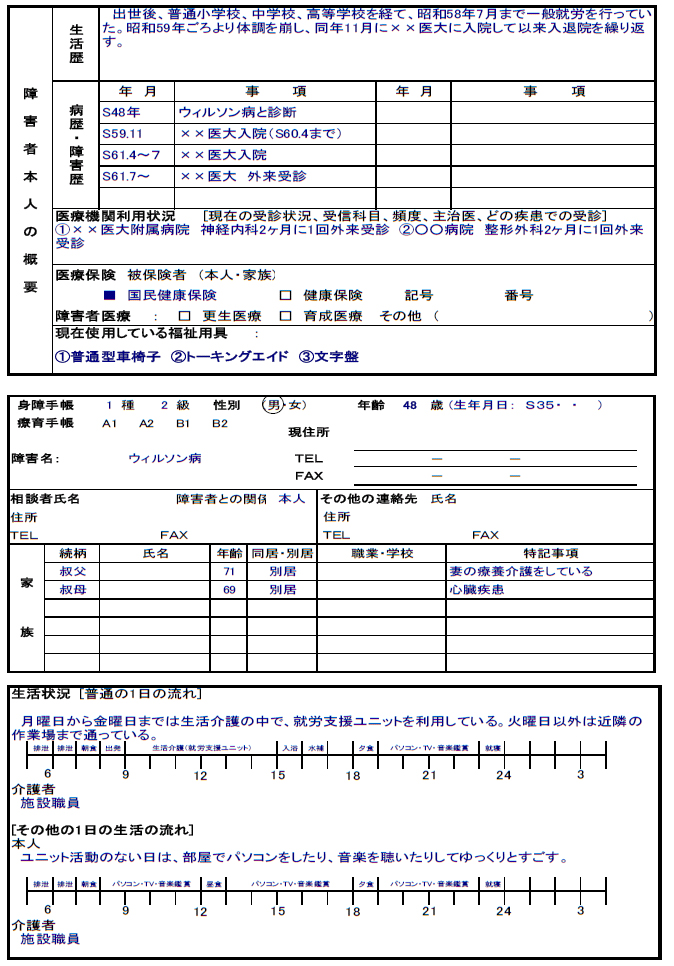 障害者本人の概要
生活歴
出世後、普通小学校、中学校、高等学校を経て、昭和58年7月まで一般就労を行ってい
た。昭和59年ごろより体調を崩し、同年11月に××医大に入院して以来入退院を繰り返
す。
病歴・障害歴
年 月 事 項 年 月 事 項
S48年 ウィルソン病と診断
S59.11 ××医大入院(S60.4まで)
S61.4～7 ××医大入院
S61.7～ ××医大 外来受診
医療機関利用状況 [現在の受診状況、受信科目、頻度、主治医、どの疾患での受診]
①××医大附属病院 神経内科2ヶ月に1回外来受診 ②〇〇病院 整形外科2ヶ月に1回外来
受診
医療保険 被保険者 (本人・家族)
■ 国民健康保険 □ 健康保険 記号 番号
障害者医療 : □ 更生医療 □ 育成医療 その他 ( )
現在使用している福祉用具 :
①普通型車椅子 ②トーキングエイド ③文字盤
身障手帳 1 種 2 級 性別 (男・女) 年齢 48 歳(生年月日: S35・ ・ )
療育手帳 A1 A2 B1 B2
現住所
障害名: ウィルソン病 TEL ― ―
FAX ― ―
相談者氏名 障害者との関係 本人 その他の連絡先 氏名
住所 住所
TEL FAX TEL FAX
家族
続柄 氏名 年齢 同居・別居 職業・学校 特記事項
叔父 71 別居 妻の療養介護をしている
叔母 69 別居 心臓疾患
生活状況 [普通の1日の流れ]
月曜日から金曜日までは生活介護の中で、就労支援ユニットを利用している。火曜日以外は近隣の
作業場まで通っている。
排泄 排泄 朝食 出発 生活介護(就労支援ユニット) 入浴 水補 夕食 パソコン・TV・音楽鑑賞 就寝
6 9 12 15 18 21 24 3
介護者
施設職員
[その他の1日の生活の流れ]
本人
ユニット活動のない日は、部屋でパソコンをしたり、音楽を聴いたりしてゆっくりとすごす。
排泄 排泄 朝食 パソコン・TV・音楽鑑賞 昼食 パソコン・TV・音楽鑑賞 夕食 パソコン・TV・音楽鑑賞 就寝
6 9 12 15 18 21 24 3
介護者
施設職員